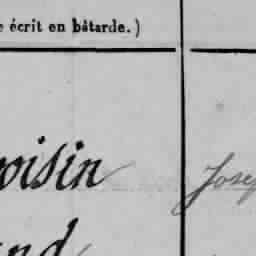 e écrit en bâtarde.)
oisin
Jose
and